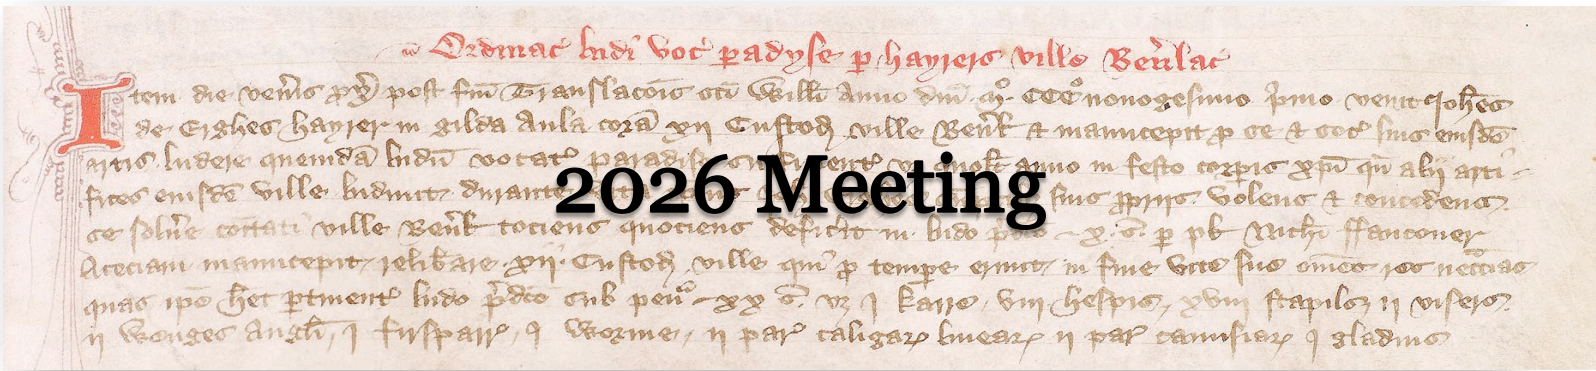 Ordinac̄ ludi voc̄ padyse p hayrers ville Beu̾lac̄
Item die ven̄is post fm̄ Translac̄ois sc̄i Will̄i Anno dn̄i mo CCCo nonogesimo p̄mo venit Joh̄es
de Erghes hayrer in gilda Aula corā xii Custod ville Beu̾l & manucepit p se & soc̄ suis eiusdē
artis ludere quemdā ludū vocat̄ paradise anno in festo corpis xp̄i qn̄ alij arti
fices eiusdē ville ludunt durante suis p̄priis volens & concedens
2026 Meeting
se solu̾e cōitati ville Beu̾l tociens quociens defic̄it in ludo x. s̄. p pl Nich̄i ffauconer
Aceciam manucepit relib̾are xii Custod ville qui p tempe erunt in fine vite sue om̄es res neccīas
quas ip̄e h̄et p̄tinent ludo p̄dc̄o sub pena xx s̄. vz j karre viij hespis xviij stapils ij visers
ij Wenges Angl̄i j firsparr j Worme ij par caligar linear ij par camisiar j gladius